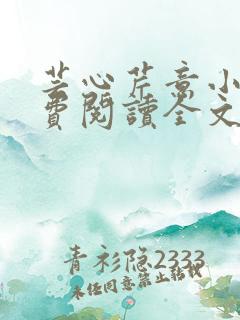 芸心芹意小
費閱讀全文
青衫隐2333
未经同意禁止转载